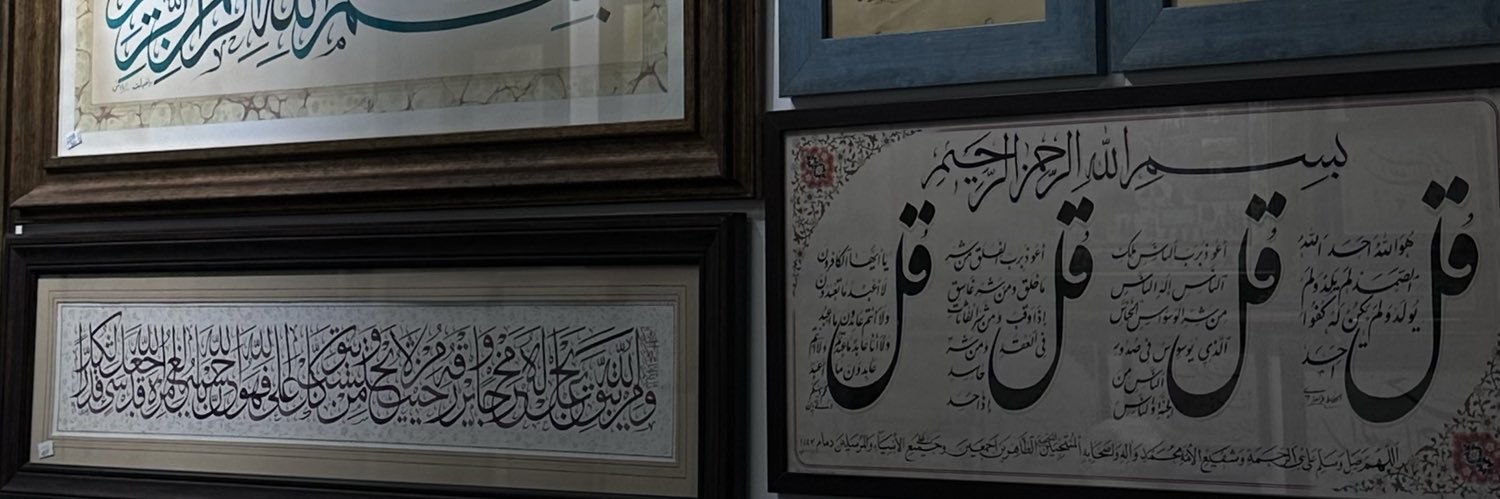 بسم الله الرحمن الرحيم
ومن يتق الله يجعل له مخرجا ويرزقه من حيث لا يحتسب ومن يتوكل على الله فهو حسبه ان الله بالغ امره قد جعل الله لكل شئ قدرا
بسم الله الرحمن الرحيم
قل
هو الله احد الله
الصمد لم يلد ولم
يولد ولم يكن له كفوا
احد
قل
أعوذ برب الناس ملك
الناس إله الناس
من شر الوسواس الخناس
الذي يوسوس في صدور
الناس من
الجنة والناس
قل
أعوذ برب الفلق من شر
ما خلق ومن شر غاسق
إذا وقب ومن شر النفاثات
في العقد ومن شر
حاسد
إذا حسد
قل
يا ايها الكافرون
لا أعبد ما تعبدون
ولا أنتم عابدون ما أعبد
ولا أنا عابد ما عبدتم
ولا أنتم عابدون ما أعبد
اللهم صل وسلم على نبي الرحمة وشفيع الأمة محمد وآله وأصحابه المنتجبين الطاهرين أجمعين وجميع الأنبياء والمرسلين